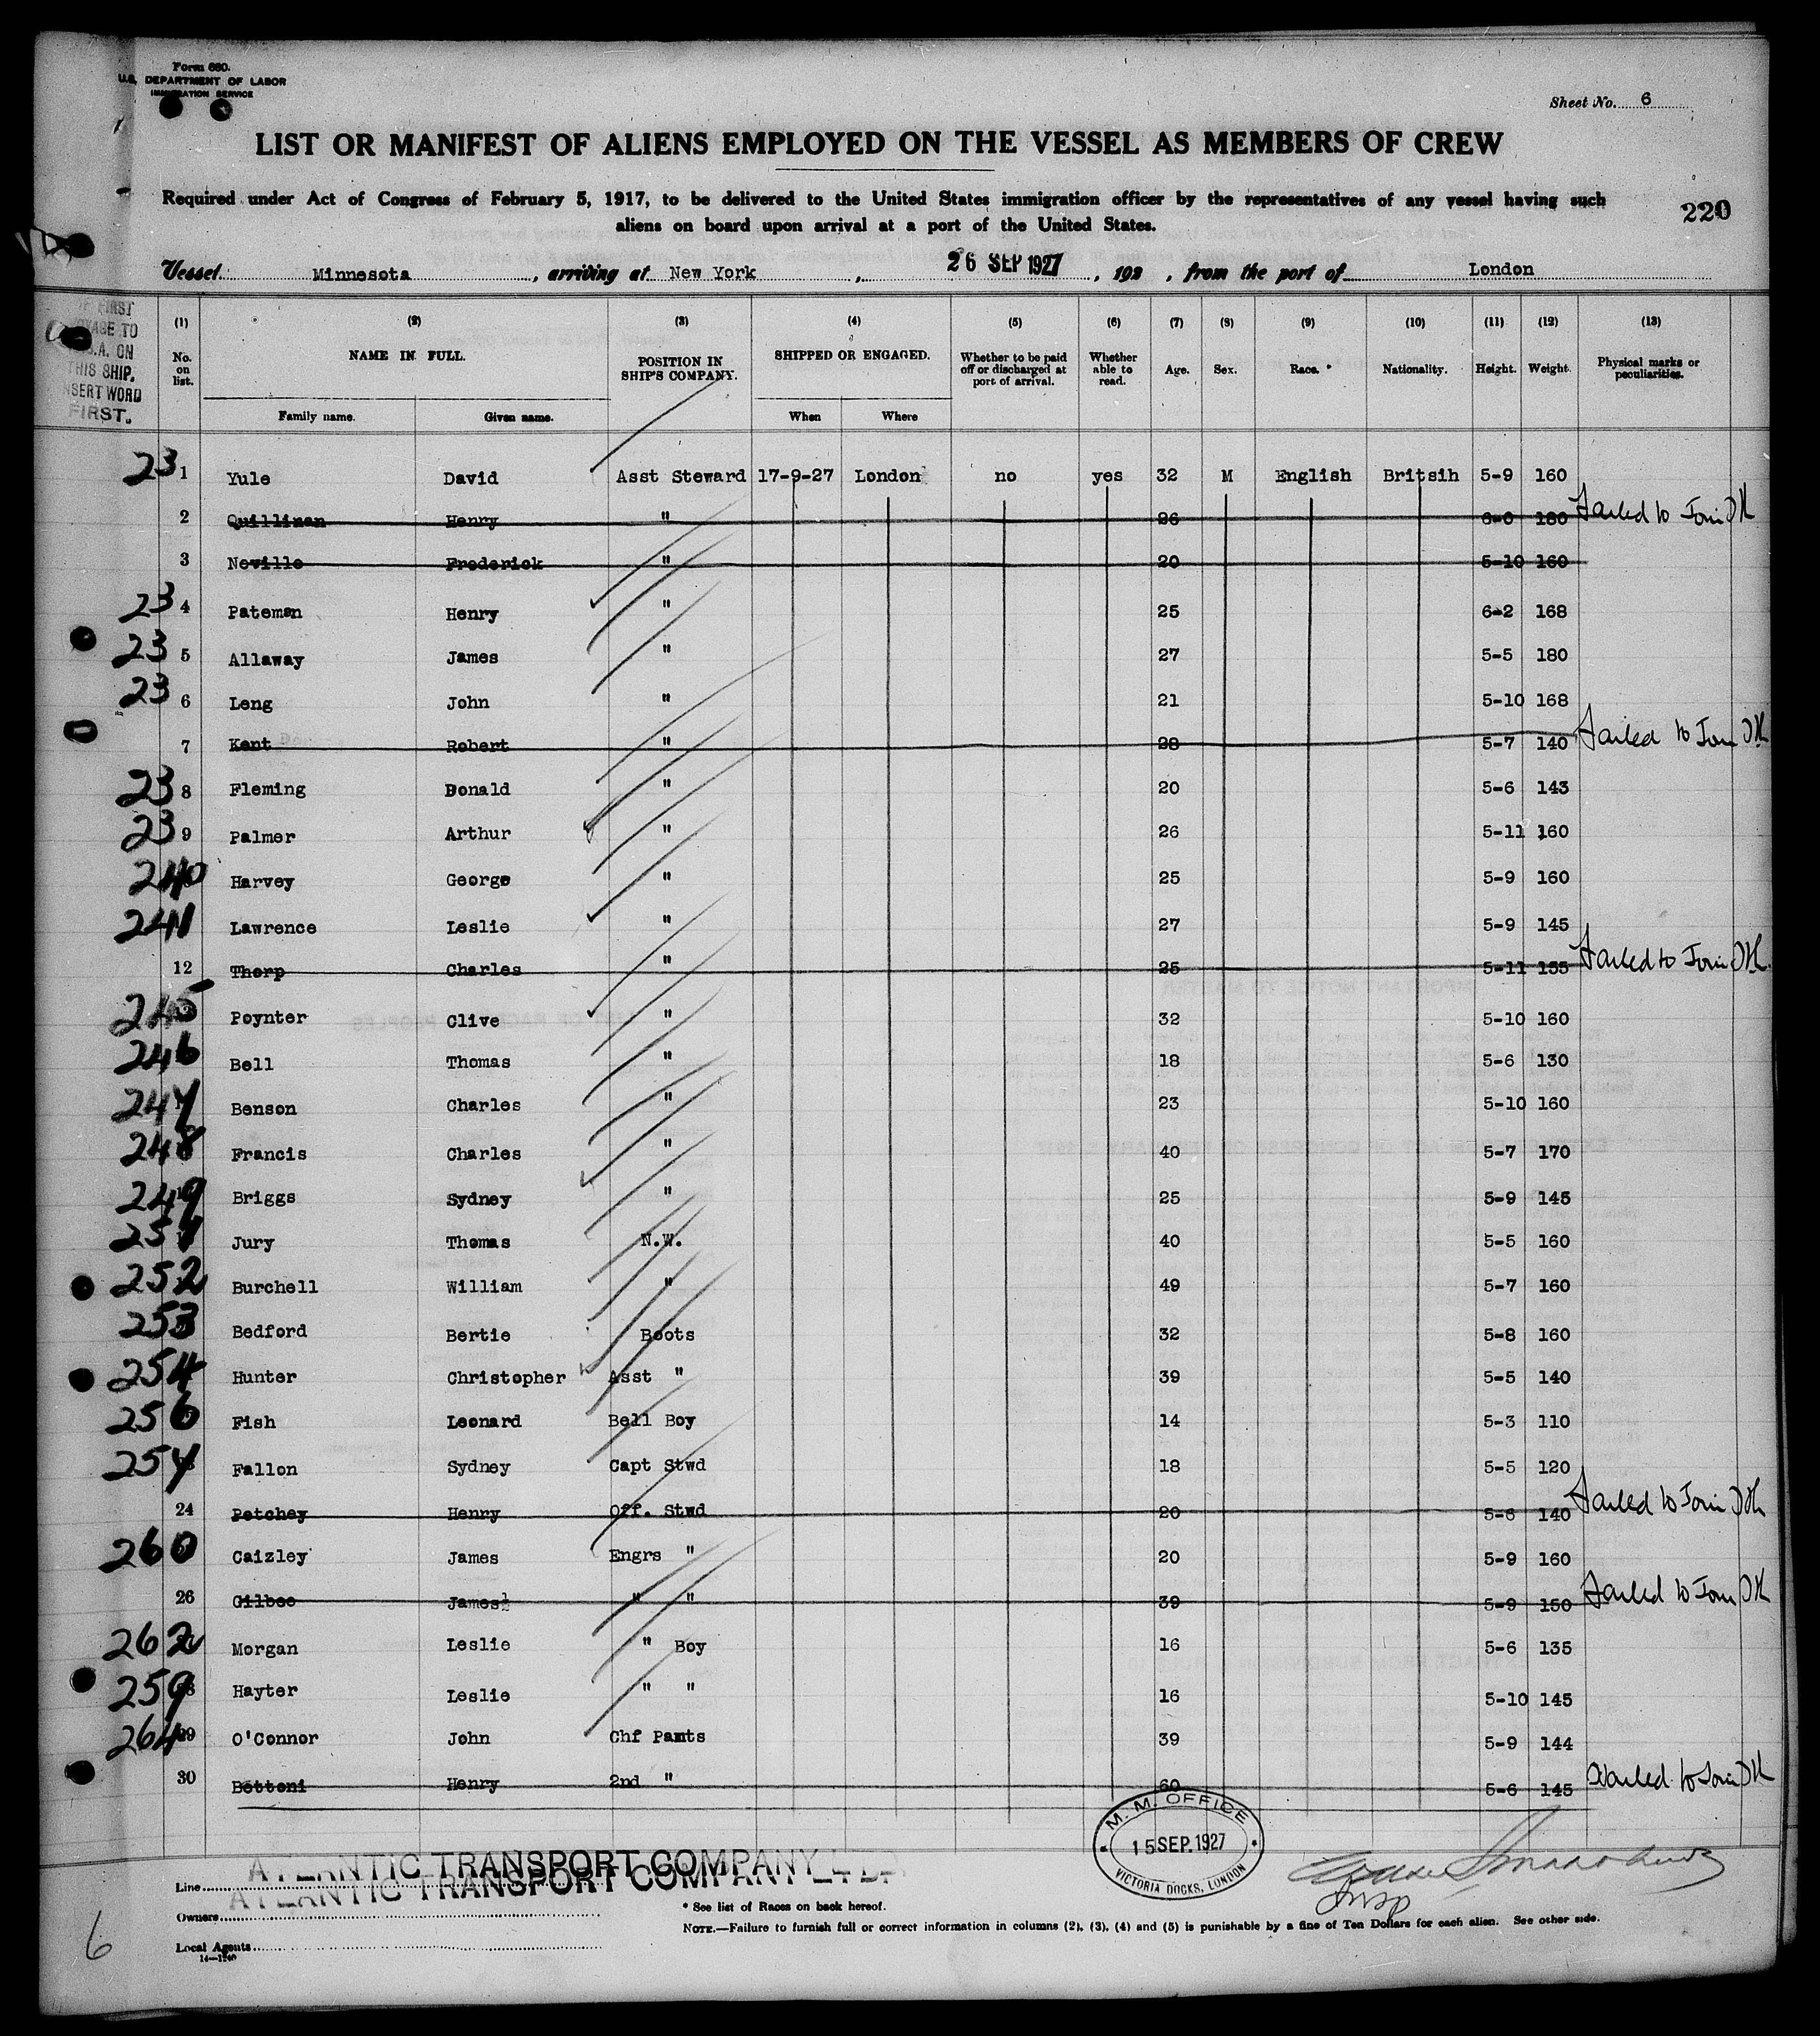 Form 680.
U.S. DEPARTMENT OF LABOR
IMMIGRATION SERVICE
Sheet No. 6
LIST OR MANIFEST OF ALIENS EMPLOYED ON THE VESSEL AS MEMBERS OF CREW
Required under Act of Congress of February 5, 1917, to be delivered to the United States immigration officer by the representatives of any vessel having such
aliens on board upon arrival at a port of the United States.
220
Vessel Minnesota, arriving at New York, 26 SEP 1927, 192, from the port of London
IF FIRST
VOYAGE TO
U.S.A. ON
THIS SHIP.
INSERT WORD
FIRST.
(1) (2) (3) (4) (5) (6) (7) (8) (9) (10) (11) (12) (13)
No. on list. NAME IN FULL. POSITION IN SHIP'S COMPANY. SHIPPED OR ENGAGED. Whether to be paid off or discharged at port of arrival. Whether able to read. Age. Sex. Race.* Nationality. Height. Weight. Physical marks or peculiarities.
Family name. Given name. When Where
23 1 Yule David Asst Steward 17-9-27 London no yes 32 M English Britsih 5-9 160
2 Quillinan Henry " 26 6-0 180 Failed to Join
3 Neville Frederick " 20 5-10 160
23 4 Pateman Henry " 25 6-2 168
23 5 Allaway James " 27 5-5 180
23 6 Leng John " 21 5-10 168
7 Kent Robert " 28 5-7 140 Failed to Join
23 8 Fleming Donald " 20 5-6 143
23 9 Palmer Arthur " 26 5-11 160
240 Harvey George " 25 5-9 160
241 Lawrence Leslie " 27 5-9 145
12 Thorp Charles " 25 5-11 155 Failed to Join
245 Poynter Clive " 32 5-10 160
246 Bell Thomas " 18 5-6 130
247 Benson Charles " 23 5-10 160
248 Francis Charles " 40 5-7 170
249 Briggs Sydney " 25 5-9 145
251 Jury Thomas N.W. 40 5-5 160
252 Burchell William " 49 5-7 160
253 Bedford Bertie Boots 32 5-8 160
254 Hunter Christopher Asst " 39 5-5 140
256 Fish Leonard Bell Boy 14 5-3 110
257 Fallon Sydney Capt Stwd 18 5-5 120
24 Petchey Henry Off. Stwd 20 5-6 140 Failed to Join
260 Caizley James Engrs " 20 5-9 160
26 Gilbee James " " 39 5-9 150 Failed to Join
262 Morgan Leslie " Boy 16 5-6 135
259 Hayter Leslie " " 16 5-10 145
264 29 O'Connor John Chf Pamts 39 5-9 144
30 Bottoni Henry 2nd " 60 5-6 145 Failed to Join
M. M. OFFICE
15 SEP. 1927
VICTORIA DOCKS, LONDON
ATLANTIC TRANSPORT COMPANY LTD.
ATLANTIC TRANSPORT COMPANY LTD.
Line
Owners
Local Agents
14—1240
* See list of Races on back hereof.
NOTE.—Failure to furnish full or correct information in columns (2), (3), (4) and (5) is punishable by a fine of Ten Dollars for each alien. See other side.
6